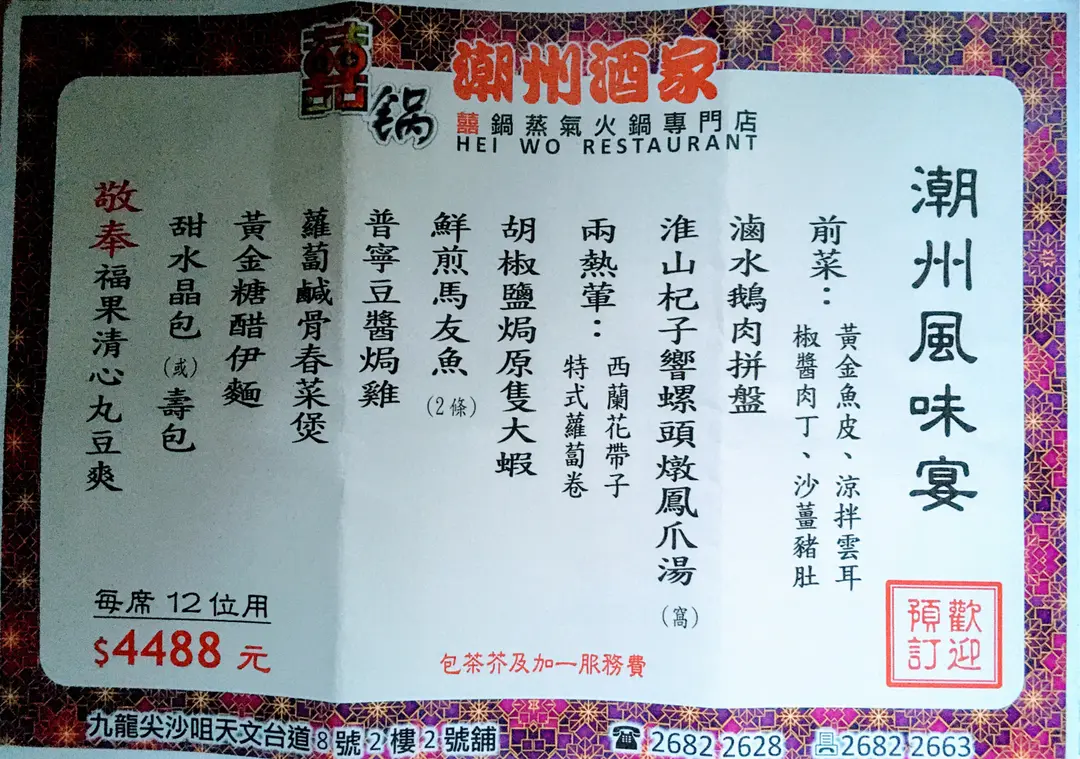 囍鍋
潮州酒家
囍鍋蒸氣火鍋專門店
HEI WO RESTAURANT
潮州風味宴
前菜：
黃金魚皮、涼拌雲耳
椒醬肉丁、沙薑豬肚
滷水鵝肉拼盤
淮山杞子響螺頭燉鳳爪湯（窩）
兩熱葷：
西蘭花帶子
特式蘿蔔卷
胡椒鹽焗原隻大蝦
鮮煎馬友魚（2條）
普寧豆醬焗雞
蘿蔔鹹骨春菜煲
黃金糖醋伊麵
甜水晶包（或）壽包
敬奉福果清心丸豆爽
每席12位用
$4488元
包茶芥及加一服務費
歡迎
預訂
九龍尖沙咀天文台道8號2樓2號舖
☎2682 2628
2682 2663